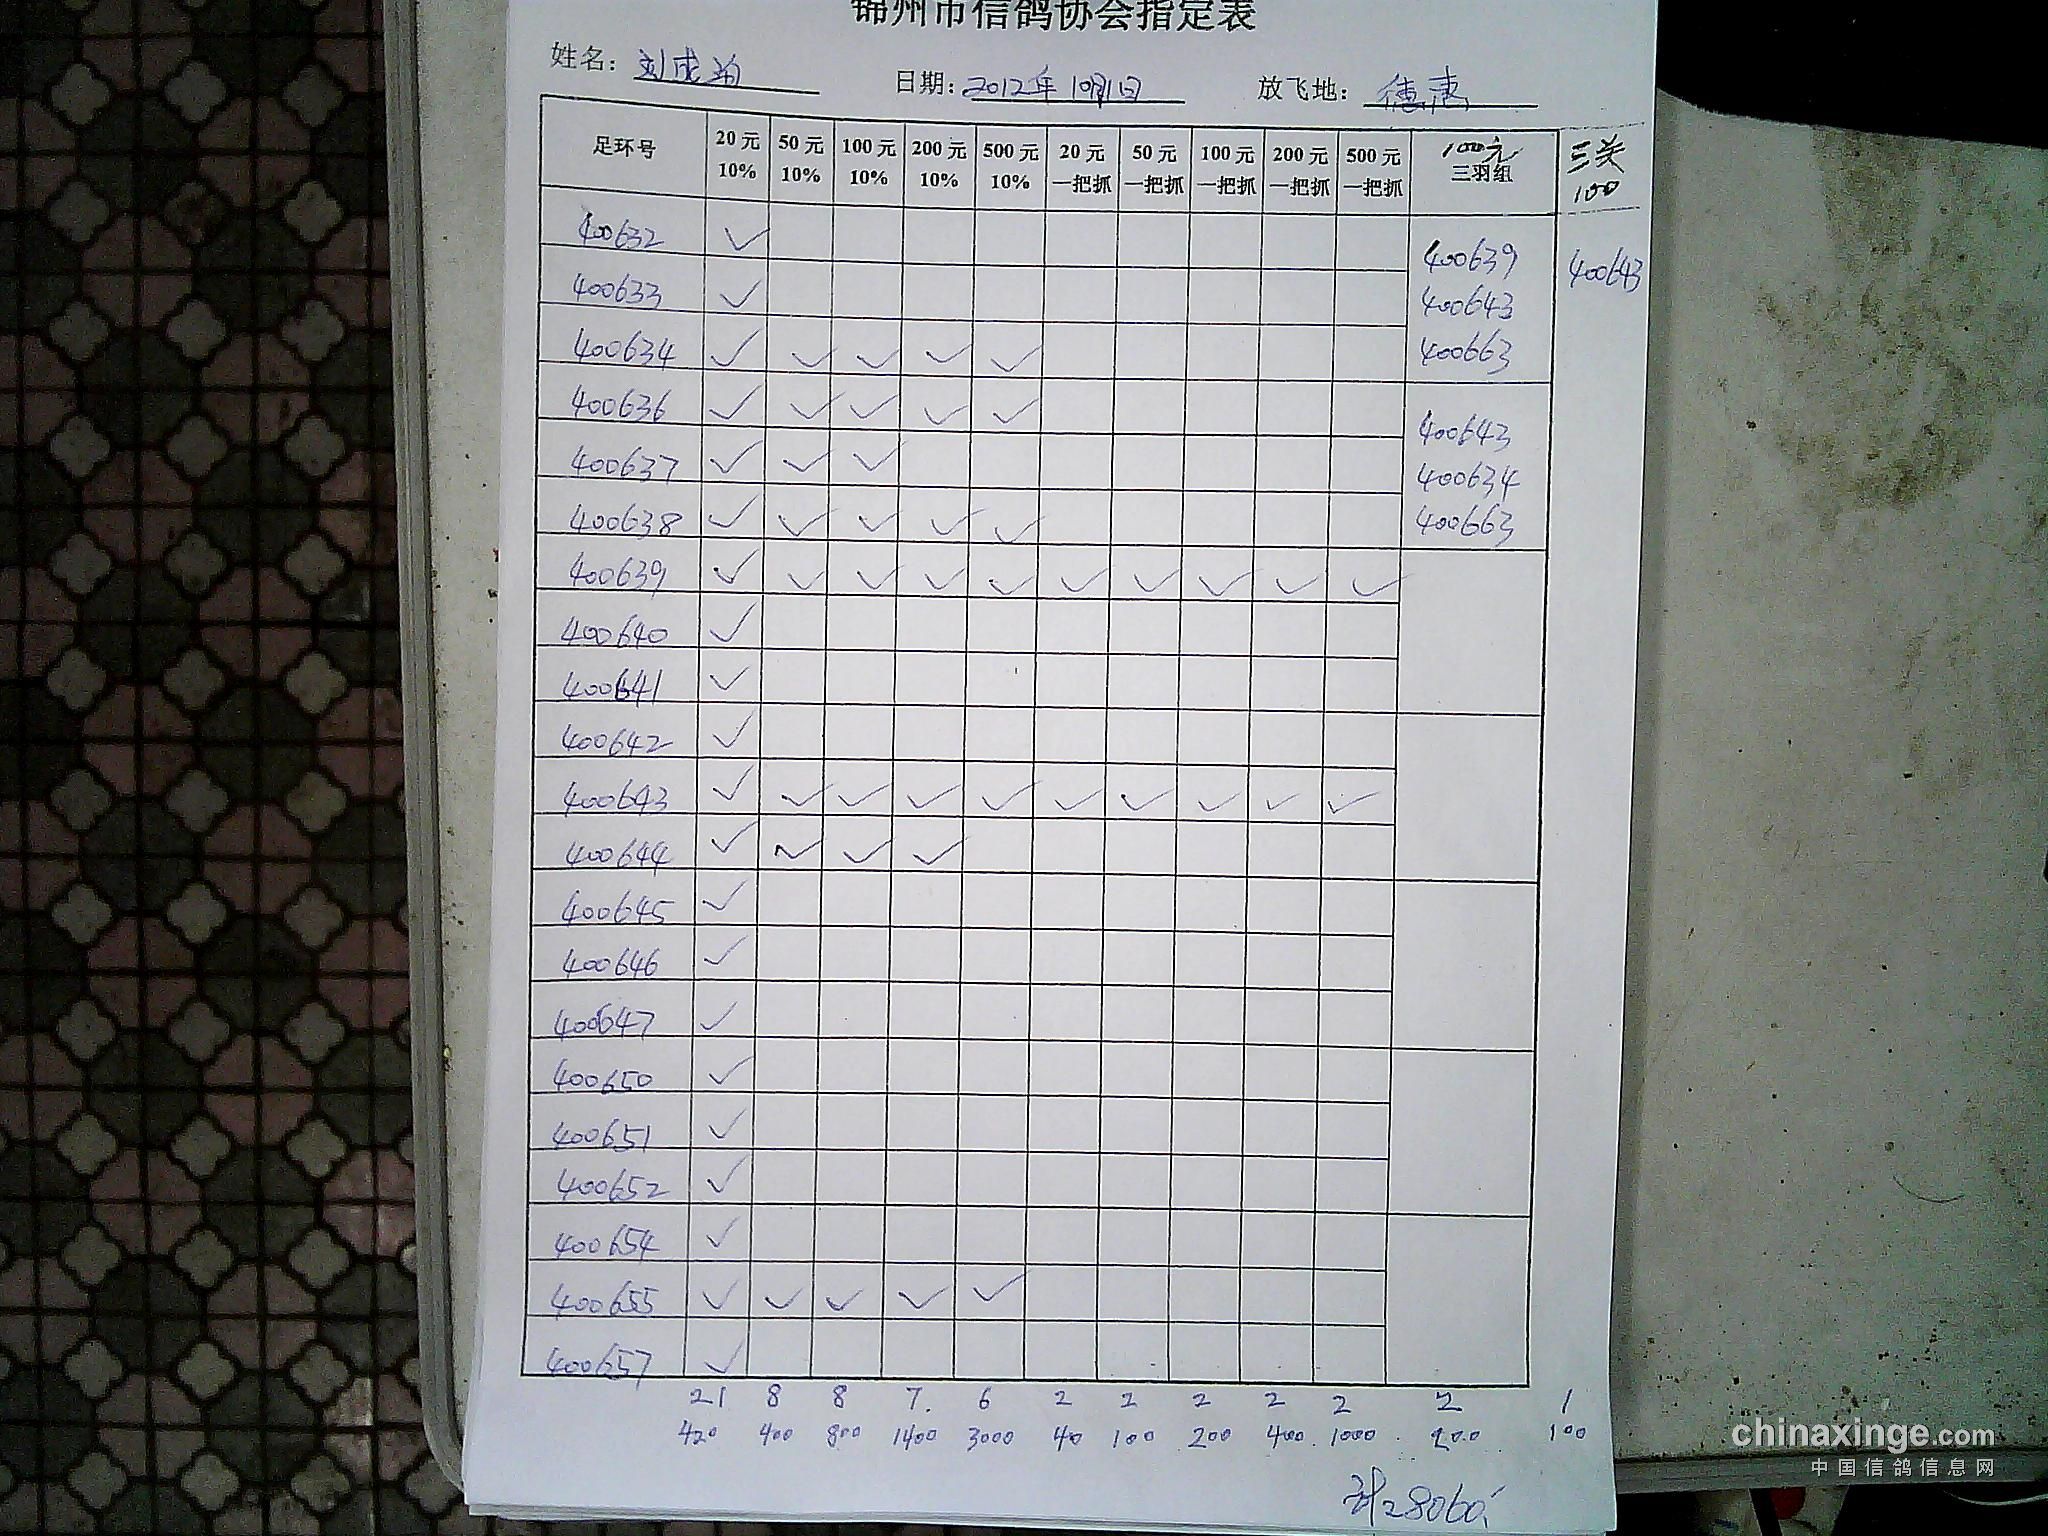 锦州市信鸽协会指定表
姓名： 刘成 日期：2012年10月1日 放飞地： 德
足环号 20元 10% 50元 10% 100元 10% 200元 10% 500元 10% 20元 一把抓 50元 一把抓 100元 一把抓 200元 一把抓 500元 一把抓 100元 三羽组 三关 100
400632 ✓
400633 ✓
400634 ✓ ✓ ✓ ✓ ✓
400636 ✓ ✓ ✓ ✓ ✓
400637 ✓ ✓ ✓
400638 ✓ ✓ ✓ ✓ ✓
400639 ✓ ✓ ✓ ✓ ✓ ✓ ✓ ✓ ✓ ✓
400640 ✓
400641 ✓
400642 ✓
400643 ✓ ✓ ✓ ✓ ✓ ✓ ✓ ✓ ✓ ✓
400644 ✓ ✓ ✓ ✓
400645 ✓
400646 ✓
400647 ✓
400650 ✓
400651 ✓
400652 ✓
400654 ✓
400655 ✓ ✓ ✓ ✓ ✓
400657 ✓
400639
400643
400663
400643
400634
400663
400643
21 8 8 7. 6 2 2 2 2 2 2 1
420 400 800 1400 3000 40 100 200 400 1000 200 100
计28060
chinaxinge.com
中国信鸽信息网